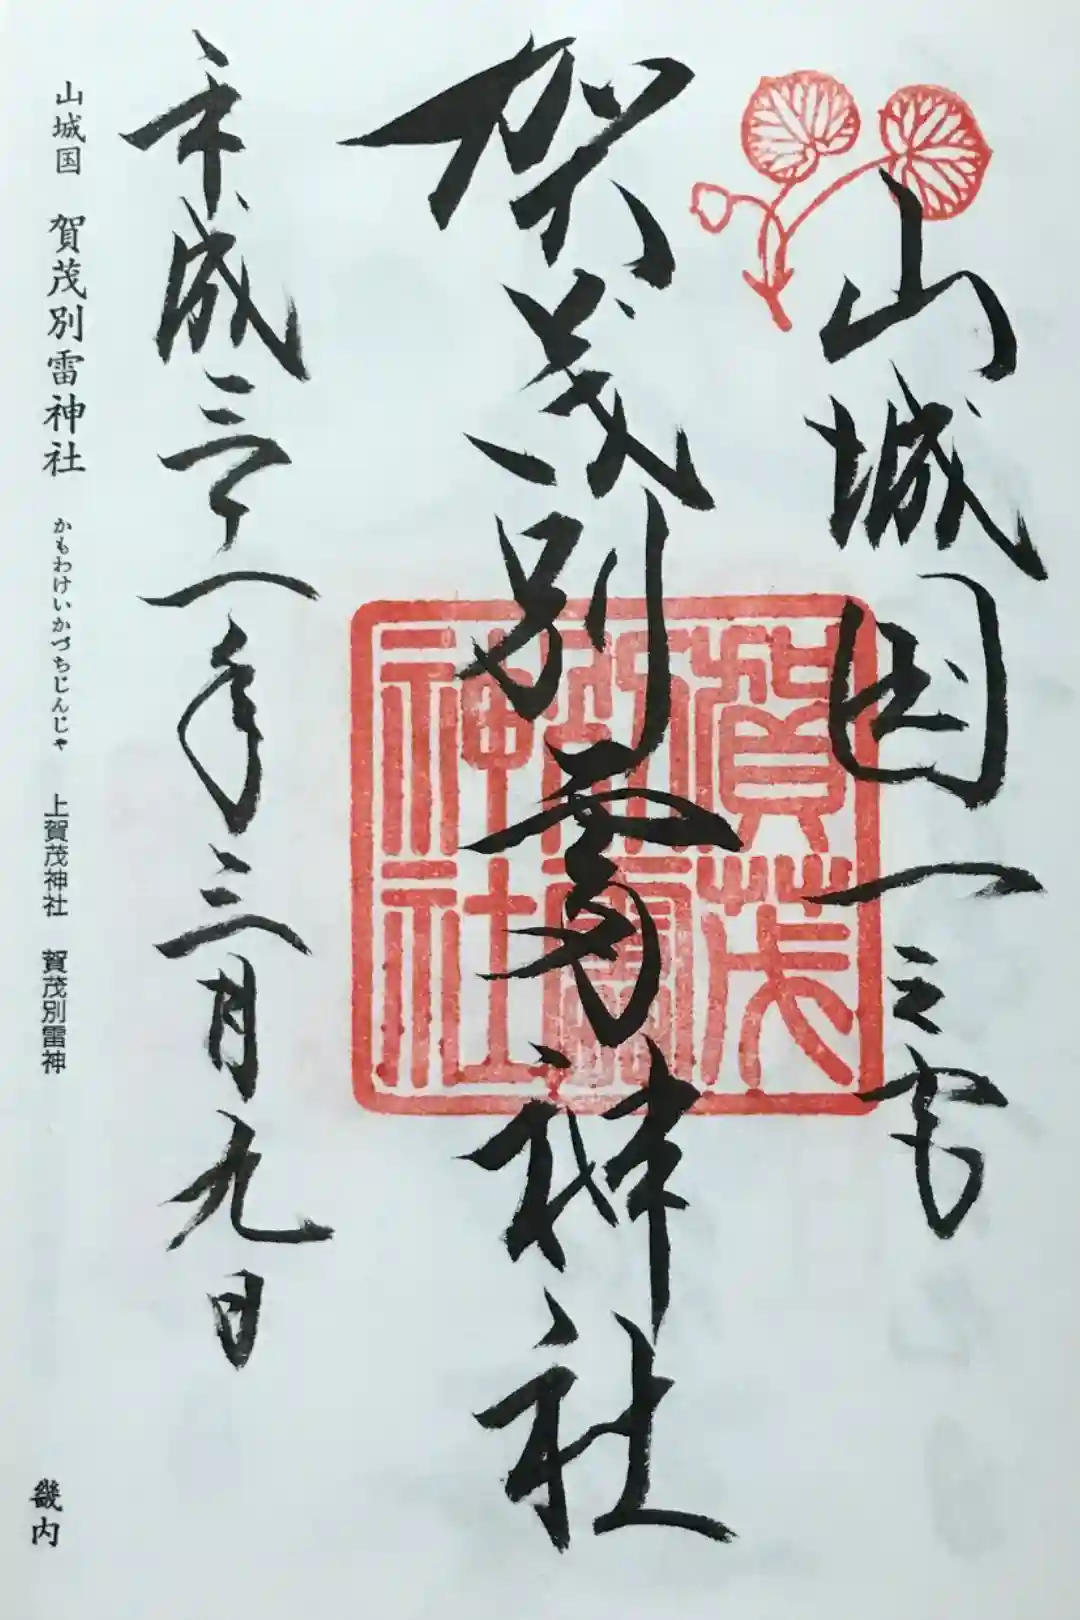 山城国一之宮
賀茂別雷神社
平成三十一年三月九日
賀茂
別雷
神社
山城国 賀茂別雷神社 かもわけいかづちじんじゃ 上賀茂神社 賀茂別雷神
畿内